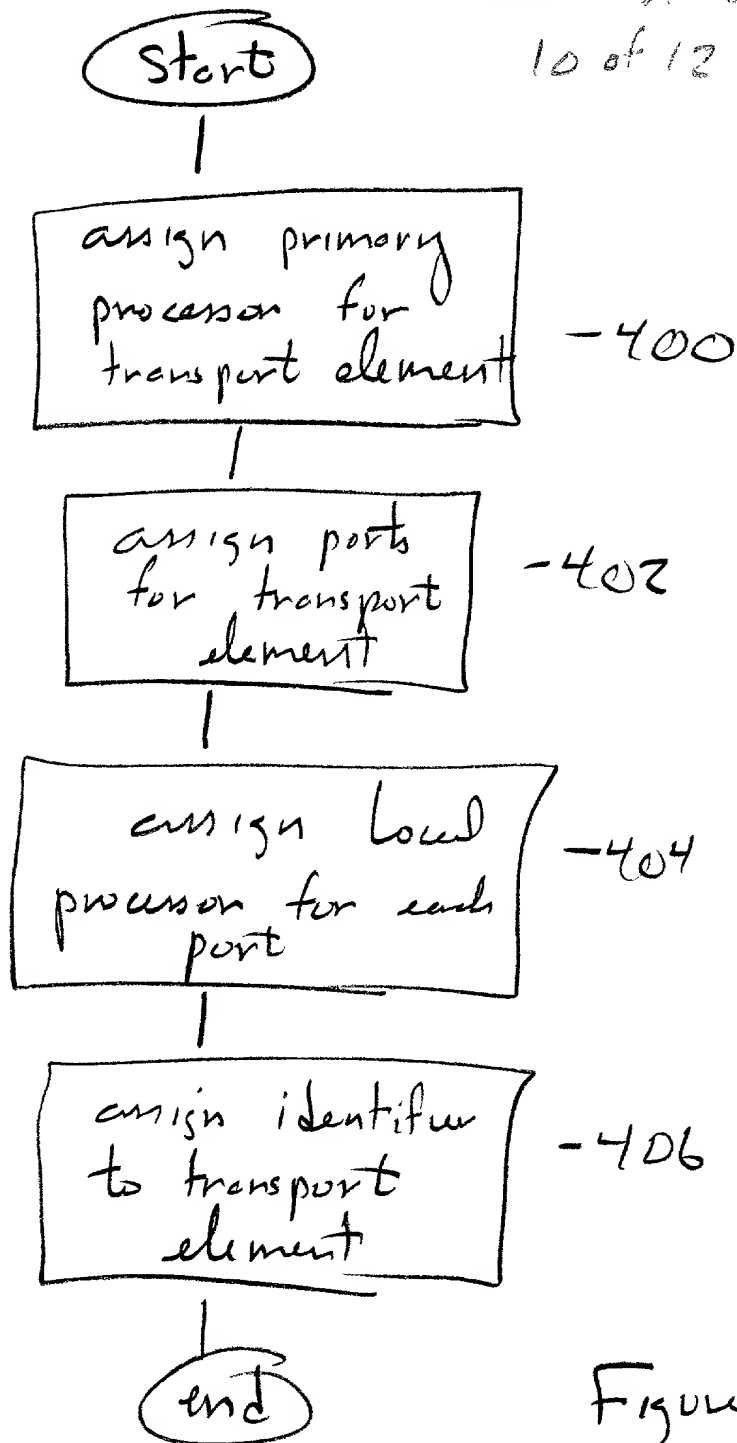 10 of 12
start
assign primary
processor for
transport element
-400
assign ports
for transport
element
-402
assign local
processor for each
port
-404
assign identifier
to transport
element
-406
end
Figure